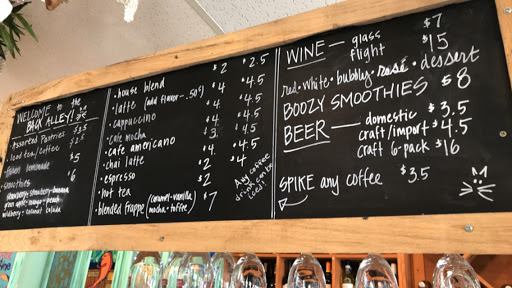 WELCOME to the
BACK ALLEY!
Assorted Pastries
Iced tea/coffee
lemonade $5
Smoothies $6
strawberry · banana
wildberry · colada
· house blend $2 $2.5
· latte (add flavor - .50¢) $4. $4.5
· cappuccino $4. $4.5
· cafe mocha $4. $4.5
· cafe americano $3. $4.5
· chai latte $4. $4.5
· espresso $2 $4
· hot tea $2
· blended frappe (caramel · vanilla / mocha · toffee) $7
Any coffee
drink can be
iced!
WINE — glass $7
flight $15
red · white · bubbly · rosé · dessert
BOOZY SMOOTHIES $8
BEER — domestic $3.5
craft/import $4.5
craft 6-pack $16
SPIKE any coffee $3.5
M